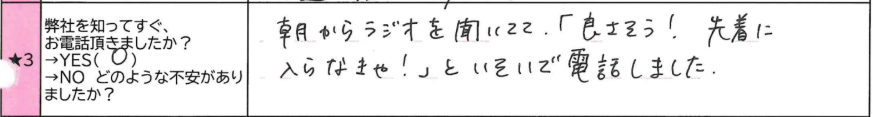 ★3
弊社を知ってすぐ、
お電話頂きましたか？
→YES(○)
→NO どのような不安があり
ましたか？
朝からラジオを聞いてて.「良さそう! 先着に
入らなきゃ!」といそいで電話しました.